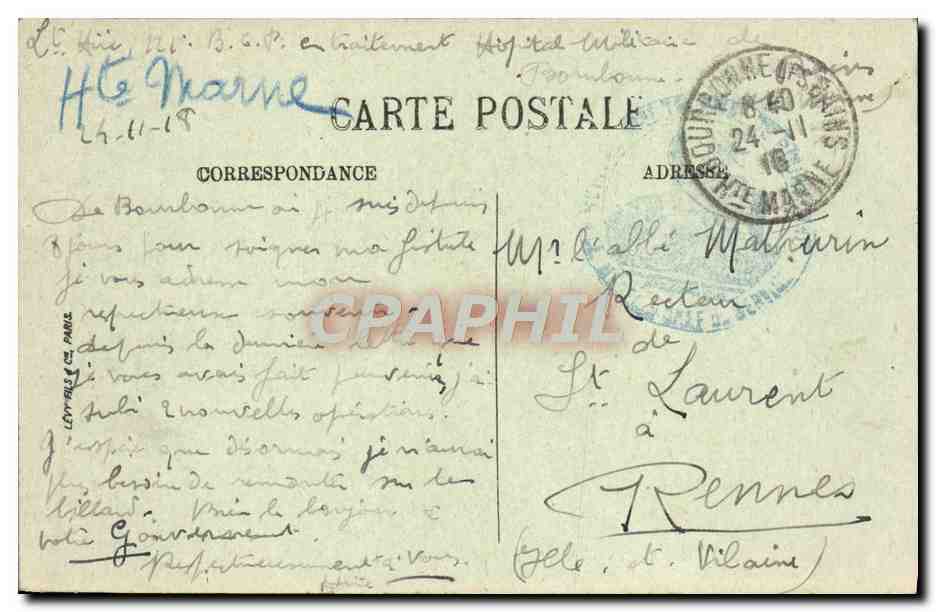 en traitement Hôpital Militaire de
Bourbonne
Hte Marne
24-11-18
CARTE POSTALE
BOURBONNE LES BAINS
8 40
24 -11
HTE MARNE
CORRESPONDANCE
ADRESSE
De Bourbonne où je suis depuis
8 jours pour soigner ma fistule
je vous adresse mon
respectueux souvenir.
depuis la dernière lettre que
je vous avais fait parvenir, j'ai
subi 2 nouvelles opérations.
J'espère que désormais je n'aurai
plus besoin de remonter sur les
billard. Bien le bonjour à
votre Gouvernement.
Respectueusement à Vous.
Mr l'abbé Mathurin
Recteur
de
St Laurent
à
Rennes
(Ille et Vilaine)
LEVY FILS & Cie, PARIS.
CPAPHIL